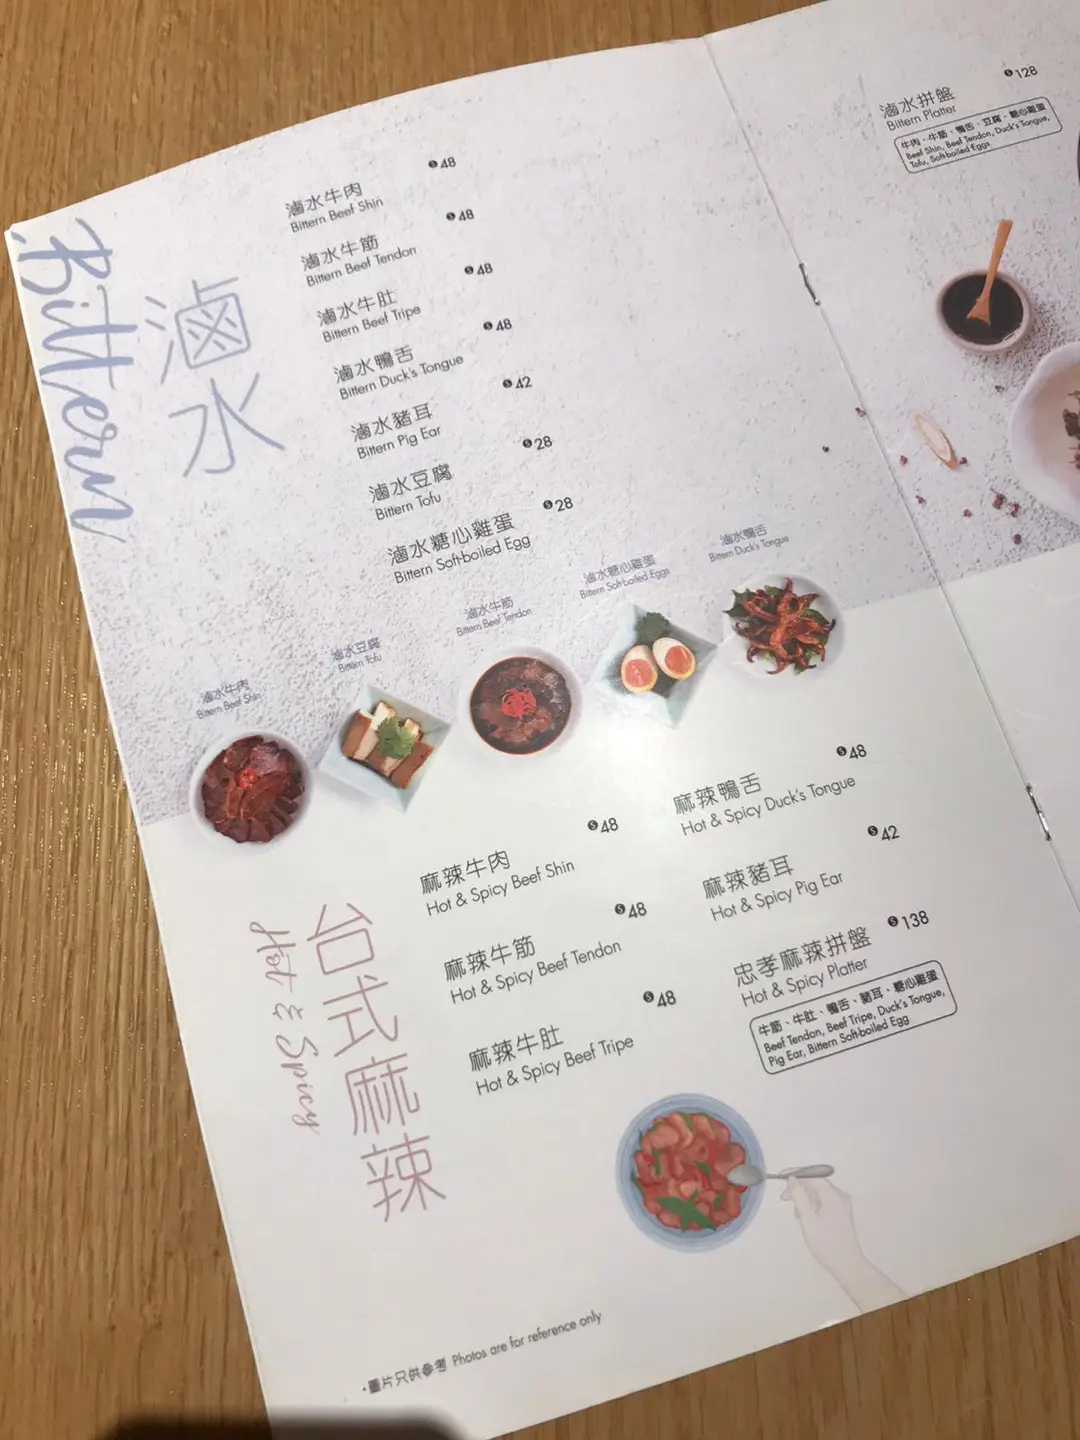 Bittern
滷水
$48
滷水牛肉
Bittern Beef Shin
$48
滷水牛筋
Bittern Beef Tendon
$48
滷水牛肚
Bittern Beef Tripe
$48
滷水鴨舌
Bittern Duck's Tongue
$42
滷水豬耳
Bittern Pig Ear
$28
滷水豆腐
Bittern Tofu
$28
滷水糖心雞蛋
Bittern Soft-boiled Egg
$128
滷水拼盤
Bittern Platter
牛肉、牛筋、鴨舌、豆腐、糖心雞蛋
Beef Shin, Beef Tendon, Duck's Tongue,
Tofu, Soft-boiled Eggs
滷水牛肉
Bittern Beef Shin
滷水豆腐
Bittern Tofu
滷水牛筋
Bittern Beef Tendon
滷水糖心雞蛋
Bittern Soft-boiled Eggs
滷水鴨舌
Bittern Duck's Tongue
Hot & Spicy
台式麻辣
$48
麻辣牛肉
Hot & Spicy Beef Shin
$48
麻辣牛筋
Hot & Spicy Beef Tendon
$48
麻辣牛肚
Hot & Spicy Beef Tripe
$48
麻辣鴨舌
Hot & Spicy Duck's Tongue
$42
麻辣豬耳
Hot & Spicy Pig Ear
$138
忠孝麻辣拼盤
Hot & Spicy Platter
牛筋、牛肚、鴨舌、豬耳、糖心雞蛋
Beef Tendon, Beef Tripe, Duck's Tongue,
Pig Ear, Bittern Soft-boiled Egg
•圖片只供參考 Photos are for reference only